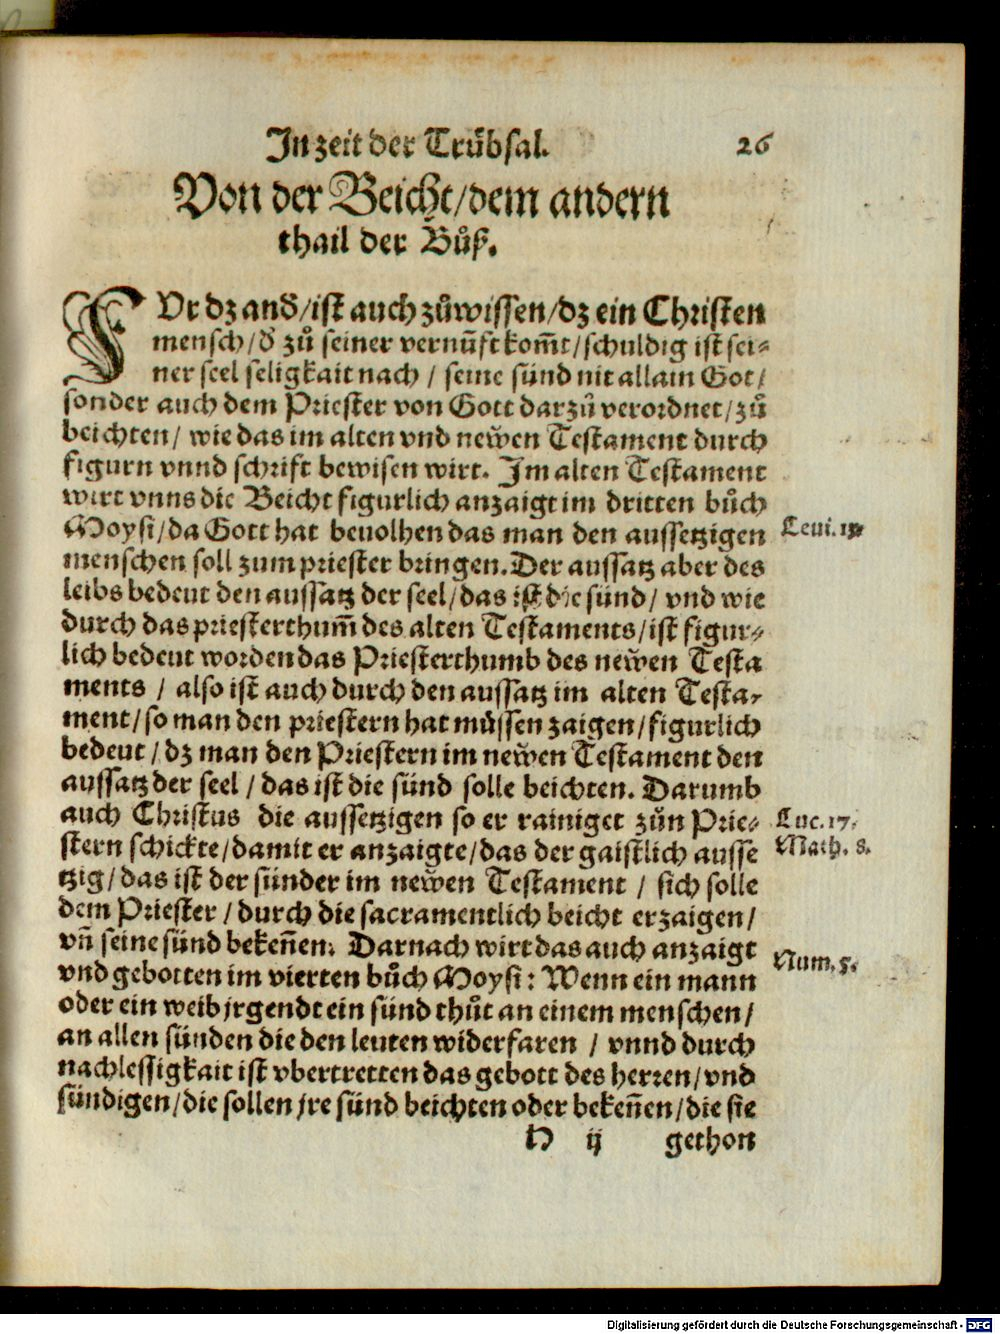 In zeit der Trübsal. 26
Von der Beicht/dem andern
thail der Bůß.
FVr dz and̄/ist auch zůwissen/dz ein Christen
mensch/d̄ zů seiner vernūfft kom̄t/schuldig ist sei⸗
ner seel seligkait nach / seine sünd nit allain Got/
sonder auch dem Priester von Gott darzů verordnet/zů
beichten/ wie das im alten vnd newen Testament durch
figurn vnnd schrift bewisen wirt. Im alten Testament
wirt vnns die Beicht figurlich anzaigt im dritten bůch
Moysi/da Gott hat beuolhen das man den aussetzigen
Leui. 13
menschen soll zum priester bringen. Der aussatz aber des
leibs bedeut den aussatz der seel/das ist die sünd/ vnd wie
durch das priesterthum̄ des alten Testaments/ist figur⸗
lich bedeut worden das Priesterthumb des newen Testa
ments / also ist auch durch den aussatz im alten Testa⸗
ment/so man den priestern hat müssen zaigen/figurlich
bedeut/dz man den Priestern im newen Testament den
aussatz der seel / das ist die sünd solle beichten. Darumb
auch Christus die aussetzigen so er rainiget zůn Prie⸗
Luc. 17.
stern schickte/damit er anzaigte/das der gaistlich ausse
Math. 8.
tzig/das ist der sünder im newen Testament / sich solle
dem Priester/durch die sacramentlich beicht erzaigen/
vn̄ seine sünd beken̄en. Darnach wirt das auch anzaigt
Num. 5.
vnd gebotten im vierten bůch Moysi: Wenn ein mann
oder ein weib jrgendt ein sünd thůt an einem menschen/
an allen sünden die den leuten widerfaren / vnnd durch
nachlessigkait ist vbertretten das gebott des herren/vnd
sündigen/die sollen jre sünd beichten oder beken̄en/die sie
H ij gethon
Digitalisierung gefördert durch die Deutsche Forschungsgemeinschaft - DFG